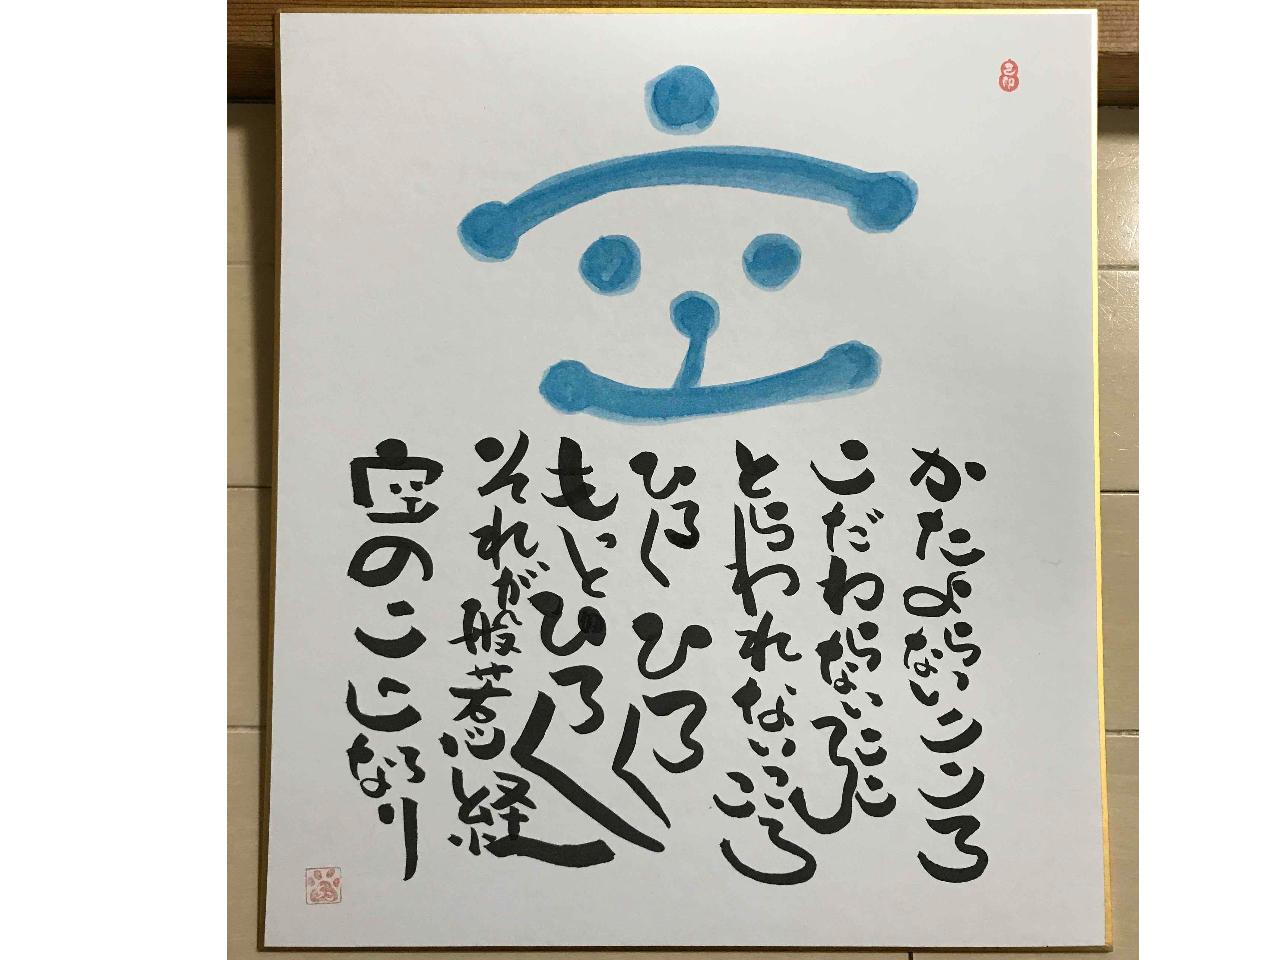 空
かたよらないこころ
こだわらないこころ
とらわれないこころ
ひろくひろく
もっとひろく
それが般若心経
空のこころなり